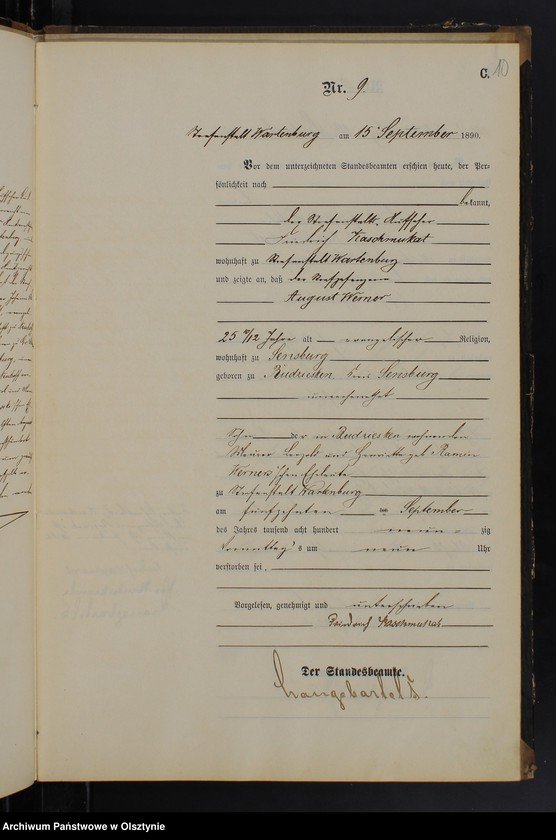 C. 10
Nr. 9.
Strafanstalt Wartenburg am 15 September 1890.
Vor dem unterzeichneten Standesbeamten erschien heute, der Per-
sönlichkeit nach
bekannt,
der Strafanstalts-Aufseher
Friedrich Kaschmukat
wohnhaft zu Strafanstalt Wartenburg
und zeigte an, daß der Strafgefangene
August Werner
25 10/12 Jahre alt evangelischer Religion,
wohnhaft zu Sensburg
geboren zu Rudziesken, Kreis Sensburg
unverheirathet
Sohn der in Rudziesken wohnenden
Maurer Leopold und Henriette geb.
Werner'schen Eheleute
zu Strafanstalt Wartenburg
am fünfzehnten September
des Jahres tausend acht hundert neun zig
Vormittags um neun Uhr
verstorben sei.
Vorgelesen, genehmigt und unterschrieben
Friedrich Kaschmukat
Der Standesbeamte.
Archiwum Państwowe w Olsztynie